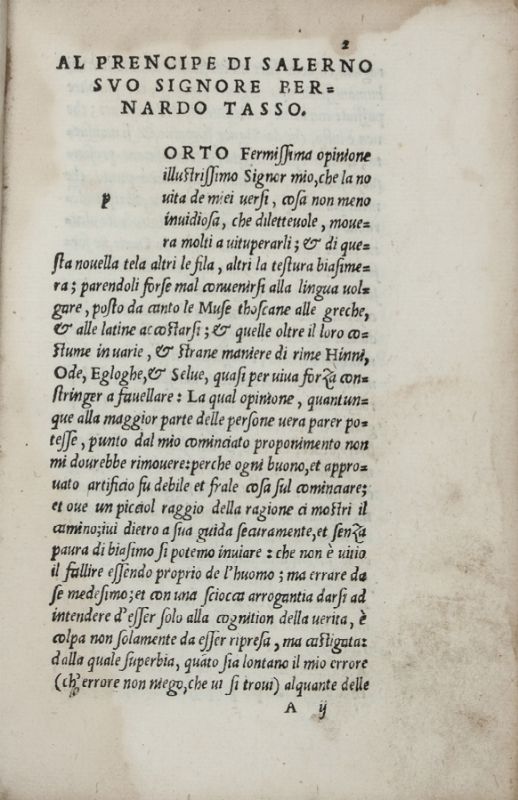 2
AL PRENCIPE DI SALERNO
SVO SIGNORE BER=
NARDO TASSO.
ORTO Fermissima opinione
illustrissimo Signor mio, che la no
p uita de miei uersi, cosa non meno
inuidiosa, che diletteuole, moue=
ra molti a uituperarli; & di que=
sta nouella tela altri le fila, altri la testura biasime=
ra; parendoli forse mal conuenirsi alla lingua uol=
gare, posto da canto le Muse thoscane alle greche,
& alle latine accostarsi; & quelle oltre il loro co=
stume in uarie, & strane maniere di rime Hinni,
Ode, Egloghe, & Selue, quasi per uiua forza con=
stringer a fauellare: La qual opinione, quantun=
que alla maggior parte delle persone uera parer po=
tesse, punto dal mio cominciato proponimento non
mi dourebbe rimouere: perche ogni buono, et appro=
uato artificio fu debile et frale cosa sul cominciare;
et oue un picciol raggio della ragione ci mostri il
camino; iui dietro a sua guida securamente, et senza
paura di biasimo si potemo inuiare: che non è uitio
il fallire essendo proprio de l'huomo; ma errare da
se medesimo; et con una sciocca arrogantia darsi ad
intendere d'esser solo alla cognition della uerita, è
colpa non solamente da esser ripresa, ma castigata:
dalla quale superbia, quãto sia lontano il mio errore
(ch' errore non niego, che ui si troui) alquante delle
A ij